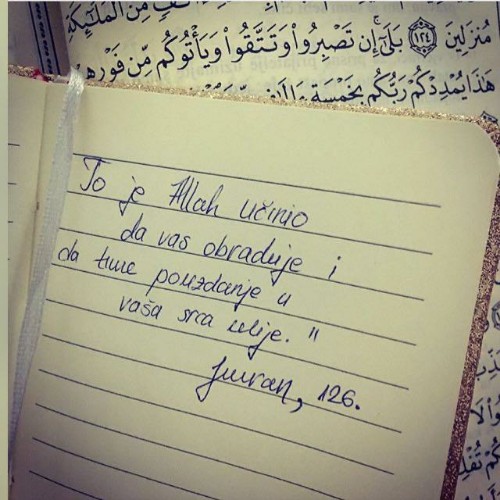 مِّنَ الْمَلَٰٓئِكَةِ
مُنزَلِينَ ١٢٤ بَلَىٰٓ إِن تَصْبِرُوا۟ وَتَتَّقُوا۟ وَيَأْتُوكُم مِّن فَوْرِهِمْ
هَٰذَا يُمْدِدْكُمْ رَبُّكُم بِخَمْسَةِ ءَالَٰفٍ
To je Allah učinio
da vas obraduje i
da time pouzdanje u
vaša srca ulije."
Imran, 126.